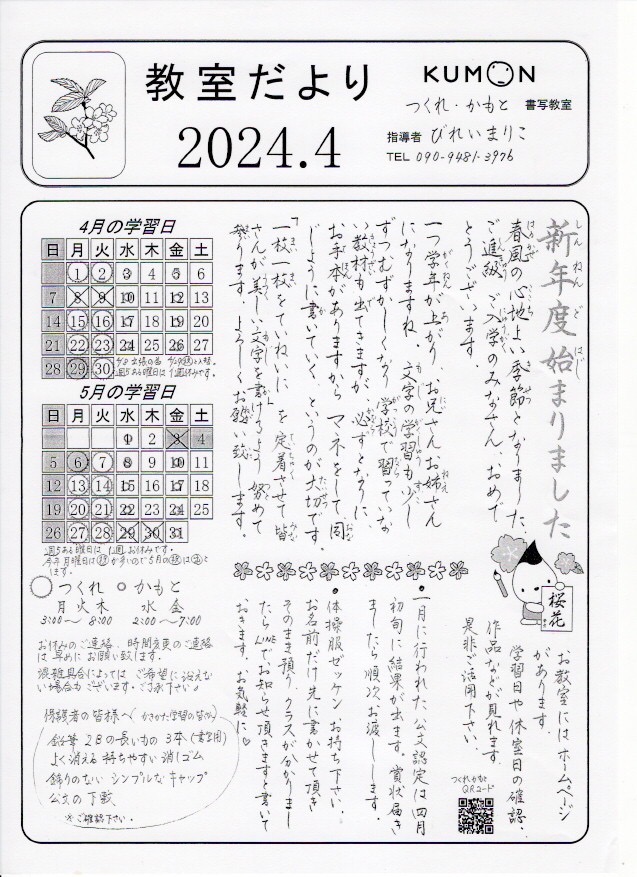 教室だより
2024.4
KUMON
つくれ・かもと 書写教室
指導者 びれいまりこ
TEL 090-9481-3976
新年度始まりました
しんねんどはじ
春風の心地よい季節となりました。
ご進級、ご入学のみなさん、おめで
とうございます。
一つ学年が上がり、お兄さんお姉さん
になりますね。文字の学習も少し
ずつむずかしくなり、学校で習っていな
い教材も出てきますが、必ずとなりに、
お手本がありますから、マネをして、同
じように書いていく、というのが大切です
「一枚一枚をていねいに」を定着させて皆
さんが美しい文字を書けるよう努めて
参ります。よろしくお願い致します。
4月の学習日
日 月 火 水 木 金 土
1 2 3 4 5 6
7 8 9 10 11 12 13
14 15 16 17 18 19 20
21 22 23 24 25 26 27
28 29 30
週5ある曜日は1週休みです。
5月の学習日
日 月 火 水 木 金 土
1 2 3 4
5 6 7 8 9 10 11
12 13 14 15 16 17 18
19 20 21 22 23 24 25
26 27 28 29 30 31
週5ある曜日は1週お休みです。
○つくれ ○かもと
月火木 水 金
3:00〜8:00 2:00〜7:00
お休みのご連絡、時間変更のご連絡
は早めにお願い致します。
混雑具合によっては ご希望に沿えな
い場合もございます。ご了承下さい。
保護者の皆様へ(かきかた学習の皆様)
鉛筆 2Bの長いもの 3本(書写用)
よく消える 持ちやすい 消しゴム
飾りのない シンプルなキャップ
公文の下敷
※ご確認下さい。
桜花
お教室にはホームページ
があります。
学習日や休室日の確認、
作品などが見れます。
是非ご活用下さい。
つくれかもと
QRコード
・一月に行われた公文認定は四月
初旬に結果が出ます。賞状届き
ましたら順次お渡しします。
・体操服ゼッケン、お持ち下さい。
お名前だけ先に書かせて頂き
そのまま預り、クラスが分かりまし
たらLINEでお知らせ頂きますと書いて
おきます。お気軽に♡